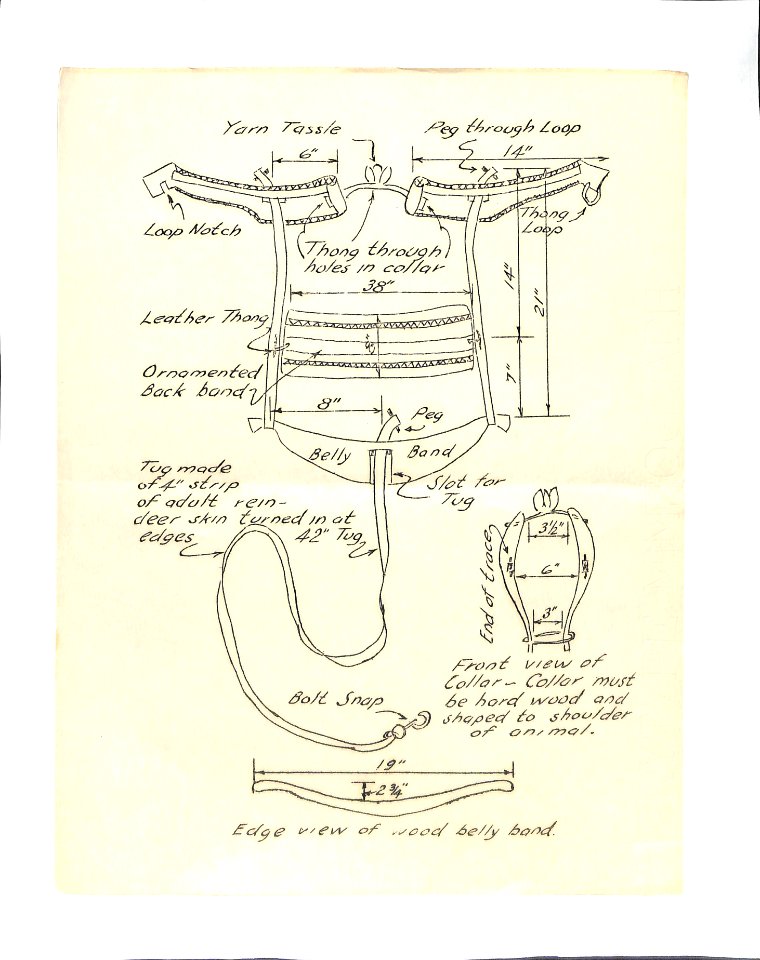 Yarn Tassle
Peg through Loop
6"
14"
Loop Notch
Thong
Loop
Thong through
holes in collar
38"
14"
21"
Leather Thong
Ornamented
Back band
7"
8"
Peg
Belly Band
Slot for
Tug
Tug made
of 4" strip
of adult rein-
deer skin turned in at
edges
42" Tug
3½"
6"
3"
End of trace
Front view of
Collar - Collar must
be hard wood and
shaped to shoulder
of animal.
Bolt Snap
19"
2¾"
Edge view of wood belly band.